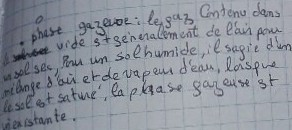 • phase gazeuse : le gaz Contenu dans
le vide st generalement de l'air pour
un sol sec. Pour un sol humide, il sagie d'un
mélange d'air et de vapeur d'eau, lorsque
le sol est saturé, la phase gazeuse st
inexistante.